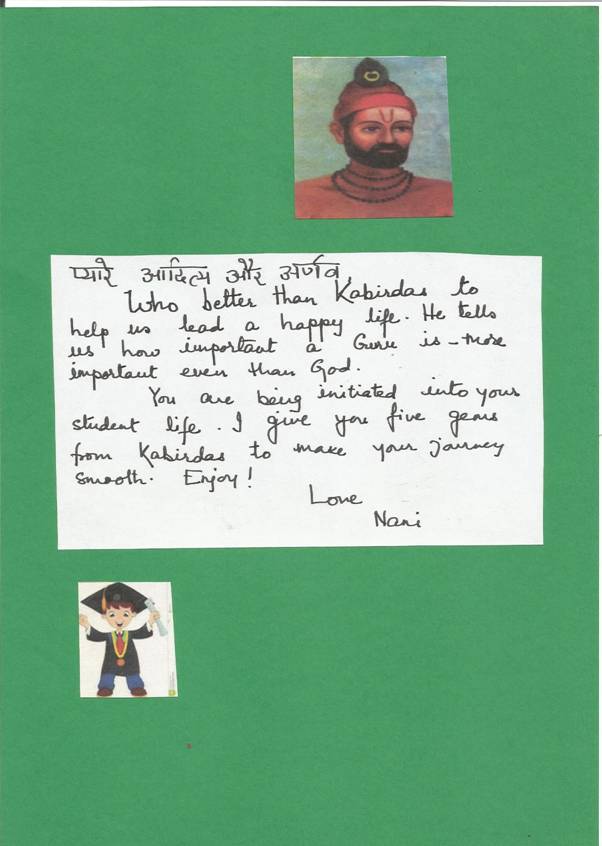 प्यारे आदित्य और अर्णव,
Who better than Kabirdas to
help us lead a happy life. He tells
us how important a Guru is - more
important even than God.
You are being initiated into your
student life. I give you five gems
from Kabirdas to make your journey
smooth. Enjoy!
Love
Nani